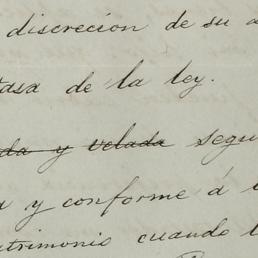 discrecion de su
de la ley.
y velada segu
y conforme á
atrimonio cuando